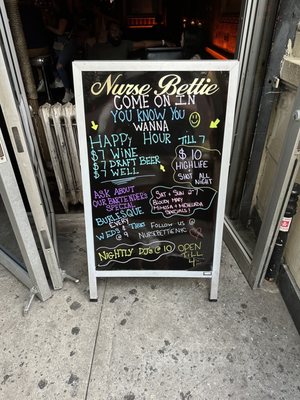 Nurse Bettie
COME ON IN
YOU KNOW YOU
WANNA
HAPPY HOUR TILL 7
$7 WINE
$7 DRAFT BEER
$7 WELL
$10
HIGHLIFE
SHOT ALL
NIGHT
ASK ABOUT
OUR BARTENDER'S
SPECIAL
SAT + SUN 2-7
BLOODY MARY
MIMOSA & MICHELADA
SPECIALS!
BURLESQUE
EVERY
WEDS & THURS
@ 9
FOLLOW US @
NURSEBETTIENYC
NIGHTLY DJ'S @ 10
OPEN
TILL
4